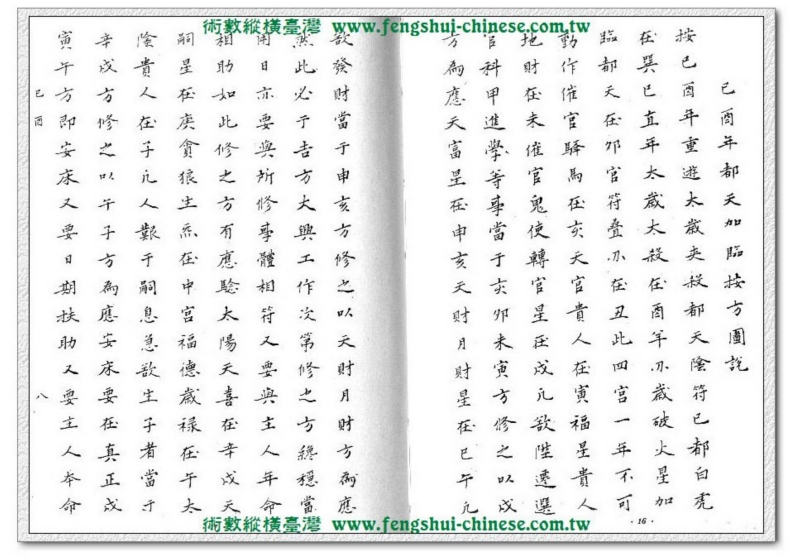 術數縱橫臺灣 www.fengshui-chinese.com.tw
己酉年都天加臨按方圖說
按己酉年重遊太歲夾殺都天陰符巳都白虎
在巽巳直年太歲太殺在酉年歲破火星加
臨都天在卯官符叠在丑此四宮一年不可
動作催官驛馬在亥天官貴人在寅福星貴人
地財在未催官鬼使轉官星在戌凡欲陞遷選
官科甲進學等事當于亥卯未寅方修之以戌
方為應天富星在申亥天財月財星在巳午凡
·16·
欲發財當于申亥方修之以天財月財方為應
然此必于吉方大興工作次第修之方穩當
開日亦要與所修事體相符又要與主人年命
相助如此修之方有應驗太陽天喜在辛戌天
嗣星在庚貪狼生炁在中宮福德歲祿在午太
陰貴人在子凡人艱于嗣息急欲生子者當于
辛戌方修之以午子方為應安床要在真正戌
寅午方即安床又要日期扶助又要主人本命
己酉
八
術數縱橫臺灣 www.fengshui-chinese.com.tw